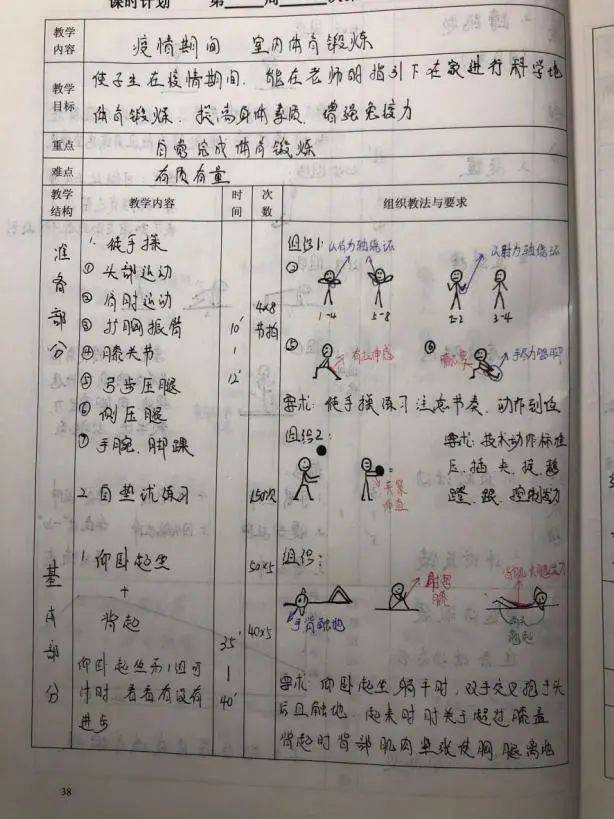 课时计划 第 周
教学内容 疫情期间 室内体育锻炼
教学目标 使学生在疫情期间,能在老师的指引下在家进行科学地
体育锻炼,提高身体素质,增强免疫力
重点 自觉完成体育锻炼
难点 有质有量
教学结构 教学内容 时间 次数 组织教法与要求
准备部分
1. 徒手操
① 头部运动
② 肩肘运动
③ 扩胸振臂
④ 膝关节
⑤ 弓步压腿
⑥ 侧压腿
⑦ 手腕、脚踝
2. 自垫球练习
10′
12′
4×8
节拍
150次
组织1:
②
以肩为轴绕环
以肘为轴绕环
1-4 5-8 2-2 3-4
⑤
有拉伸感
⑥
要求:徒手操练习注意节奏,动作到位
组织2:
要求:技术动作标准
压、插、夹、提、移
蹬、跟、控制发力
基本部分
1. 仰卧起坐
+
背起
仰卧起坐另1组可
计时 看看有没有
进步
35′
40′
50×5
40×5
组织:
手背触地
要求:仰卧起坐躺平时,双手交叉抱于头
后且触地,起来时肘关于超过膝盖
背起时背部肌肉紧张使胸、腿离地
38